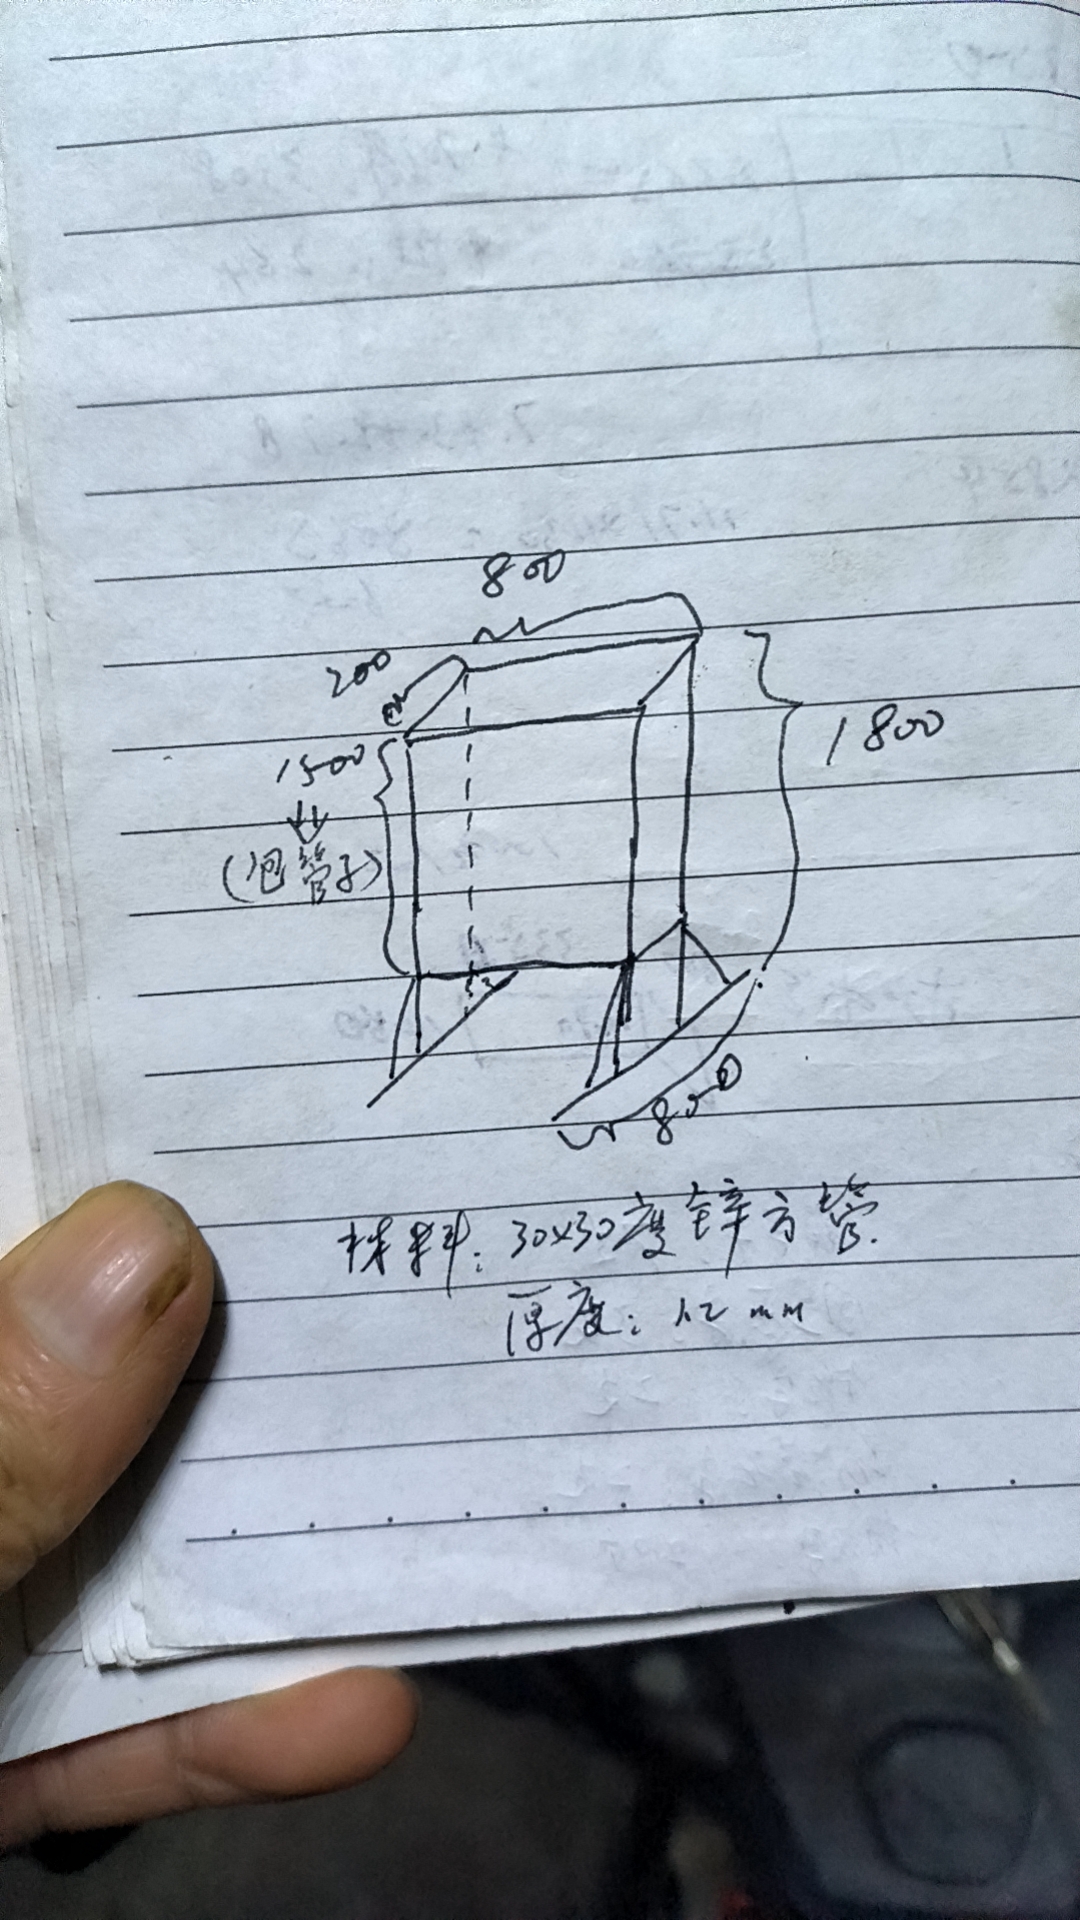 800
200
1500
1800
(包管子)
800
材料: 30x30度锌方管.
厚度: 1.2 mm